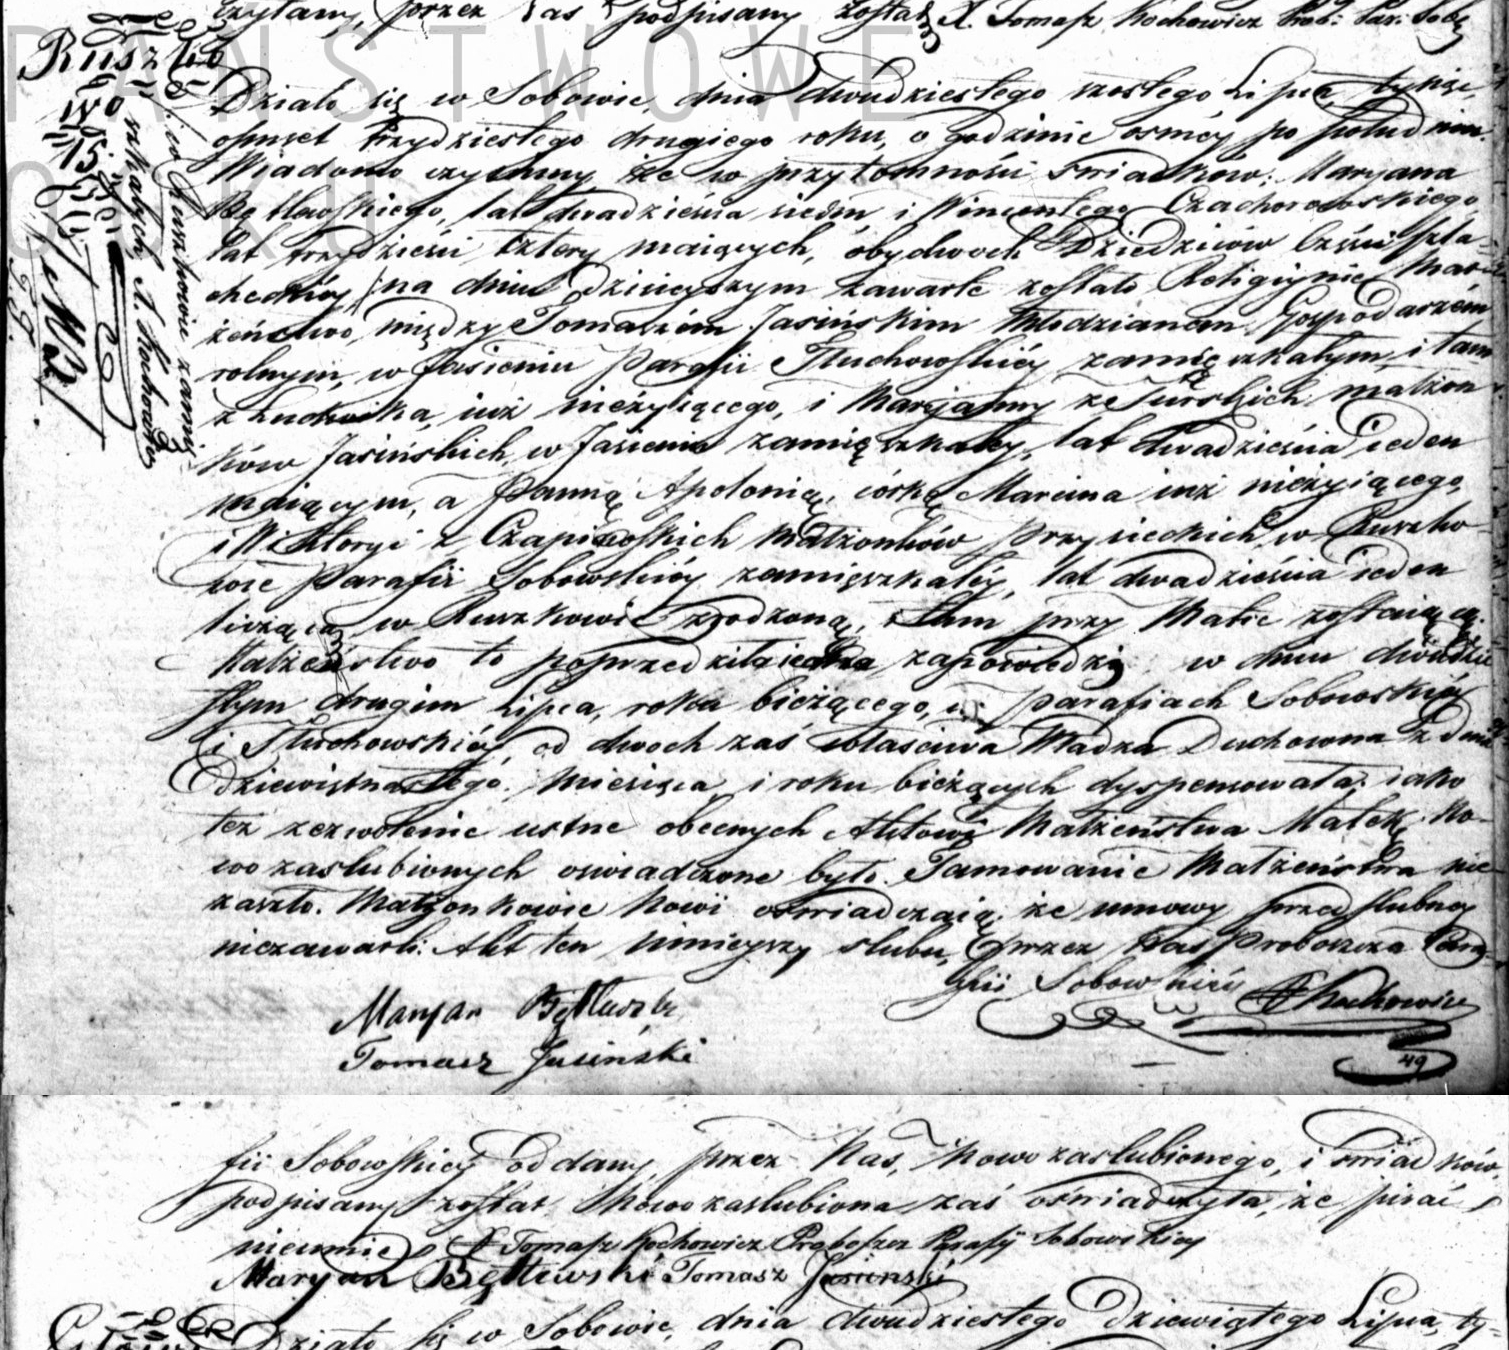 czytany, przez Nas podpisany został X. Tomasz Kochowicz Prob: Par: Sob:
Ruszko
wo
15.
Działo się w Sobowie, dnia dwudziestego szostego Lipca, tysiąc
ośmset trzydziestego drugiego roku, o godzinie osmey po południu.
Wiadomo czyniemy że w przytomności świadków: Maryana
Bętlewskiego, lat dwadzieścia siedm i Wincentego Czachorowskiego
lat trzydzieści cztery maiących, obydwoch Dziedziców Części szla-
checkiey, na dniu dzisieyszym zawarte zostało Religiynie Mał-
żeństwo, między Tomaszem Jasińskim Młodzianem, Gospodarzem
rolnym, w Jasieniu Parafii Tłuchowskiéy zamięszkałym, i tam
z Ludwika, iuż nieżyiącego, i Maryanny z Turskich małżon
ków Jasińskich, w Jasieniu zamięszkałéy, lat dwadzieścia ieden
maiącym, a Panną Apolonią, córką Marcina iuż nieżyiącego,
i Wiktoryi z Czapiewskich Małżonków Przysieckich, w Ruszko-
wie Parafii Sobowskiéy zamięszkałéy, lat dwadzieścia ieden
liczącą, w Ruszkowie zrodzoną, i tam przy Matce zostaiącą.
Małżeństwo to poprzedziła iedna zapowiedź w dniu dwudzie
stym drugim Lipca, roku bieżącego, w Parafiach Sobowskiéy
i Tłuchowskiéy, od dwoch zaś właściwa Władza Duchowna z dnia
Dziewiętnastego Miesiąca i roku bieżących dyspensowała; iako
też zezwolenie ustne obecnych Aktowi Małżeństwa Matek No-
wozaslubionych oswiadczone było. Tamowanie Małżeństwa nie
zaszło. Małżonkowie Nowi oświadczaią, że umowy przedślubney
niezawarli: Akt ten ninieyszy slubu, przez Nas Proboszcza Para-
fii Sobowskiéy X Kochowicz
Maryan Bętlewski
Tomasz Jasiński
49
fii Sobowskiey oddany, przez Nas, Nowozaslubionego, i świadków
podpisany został Nowozaslubiona zaś oświadczyła, że pisać
nieumie X Tomasz Kochowicz Proboszcz Parafii Sobowskiey
Maryan Bętlewski Tomasz Jasinski
Działo się w Sobowie, dnia dwudziestego Dziewiątego Lipca, ty-